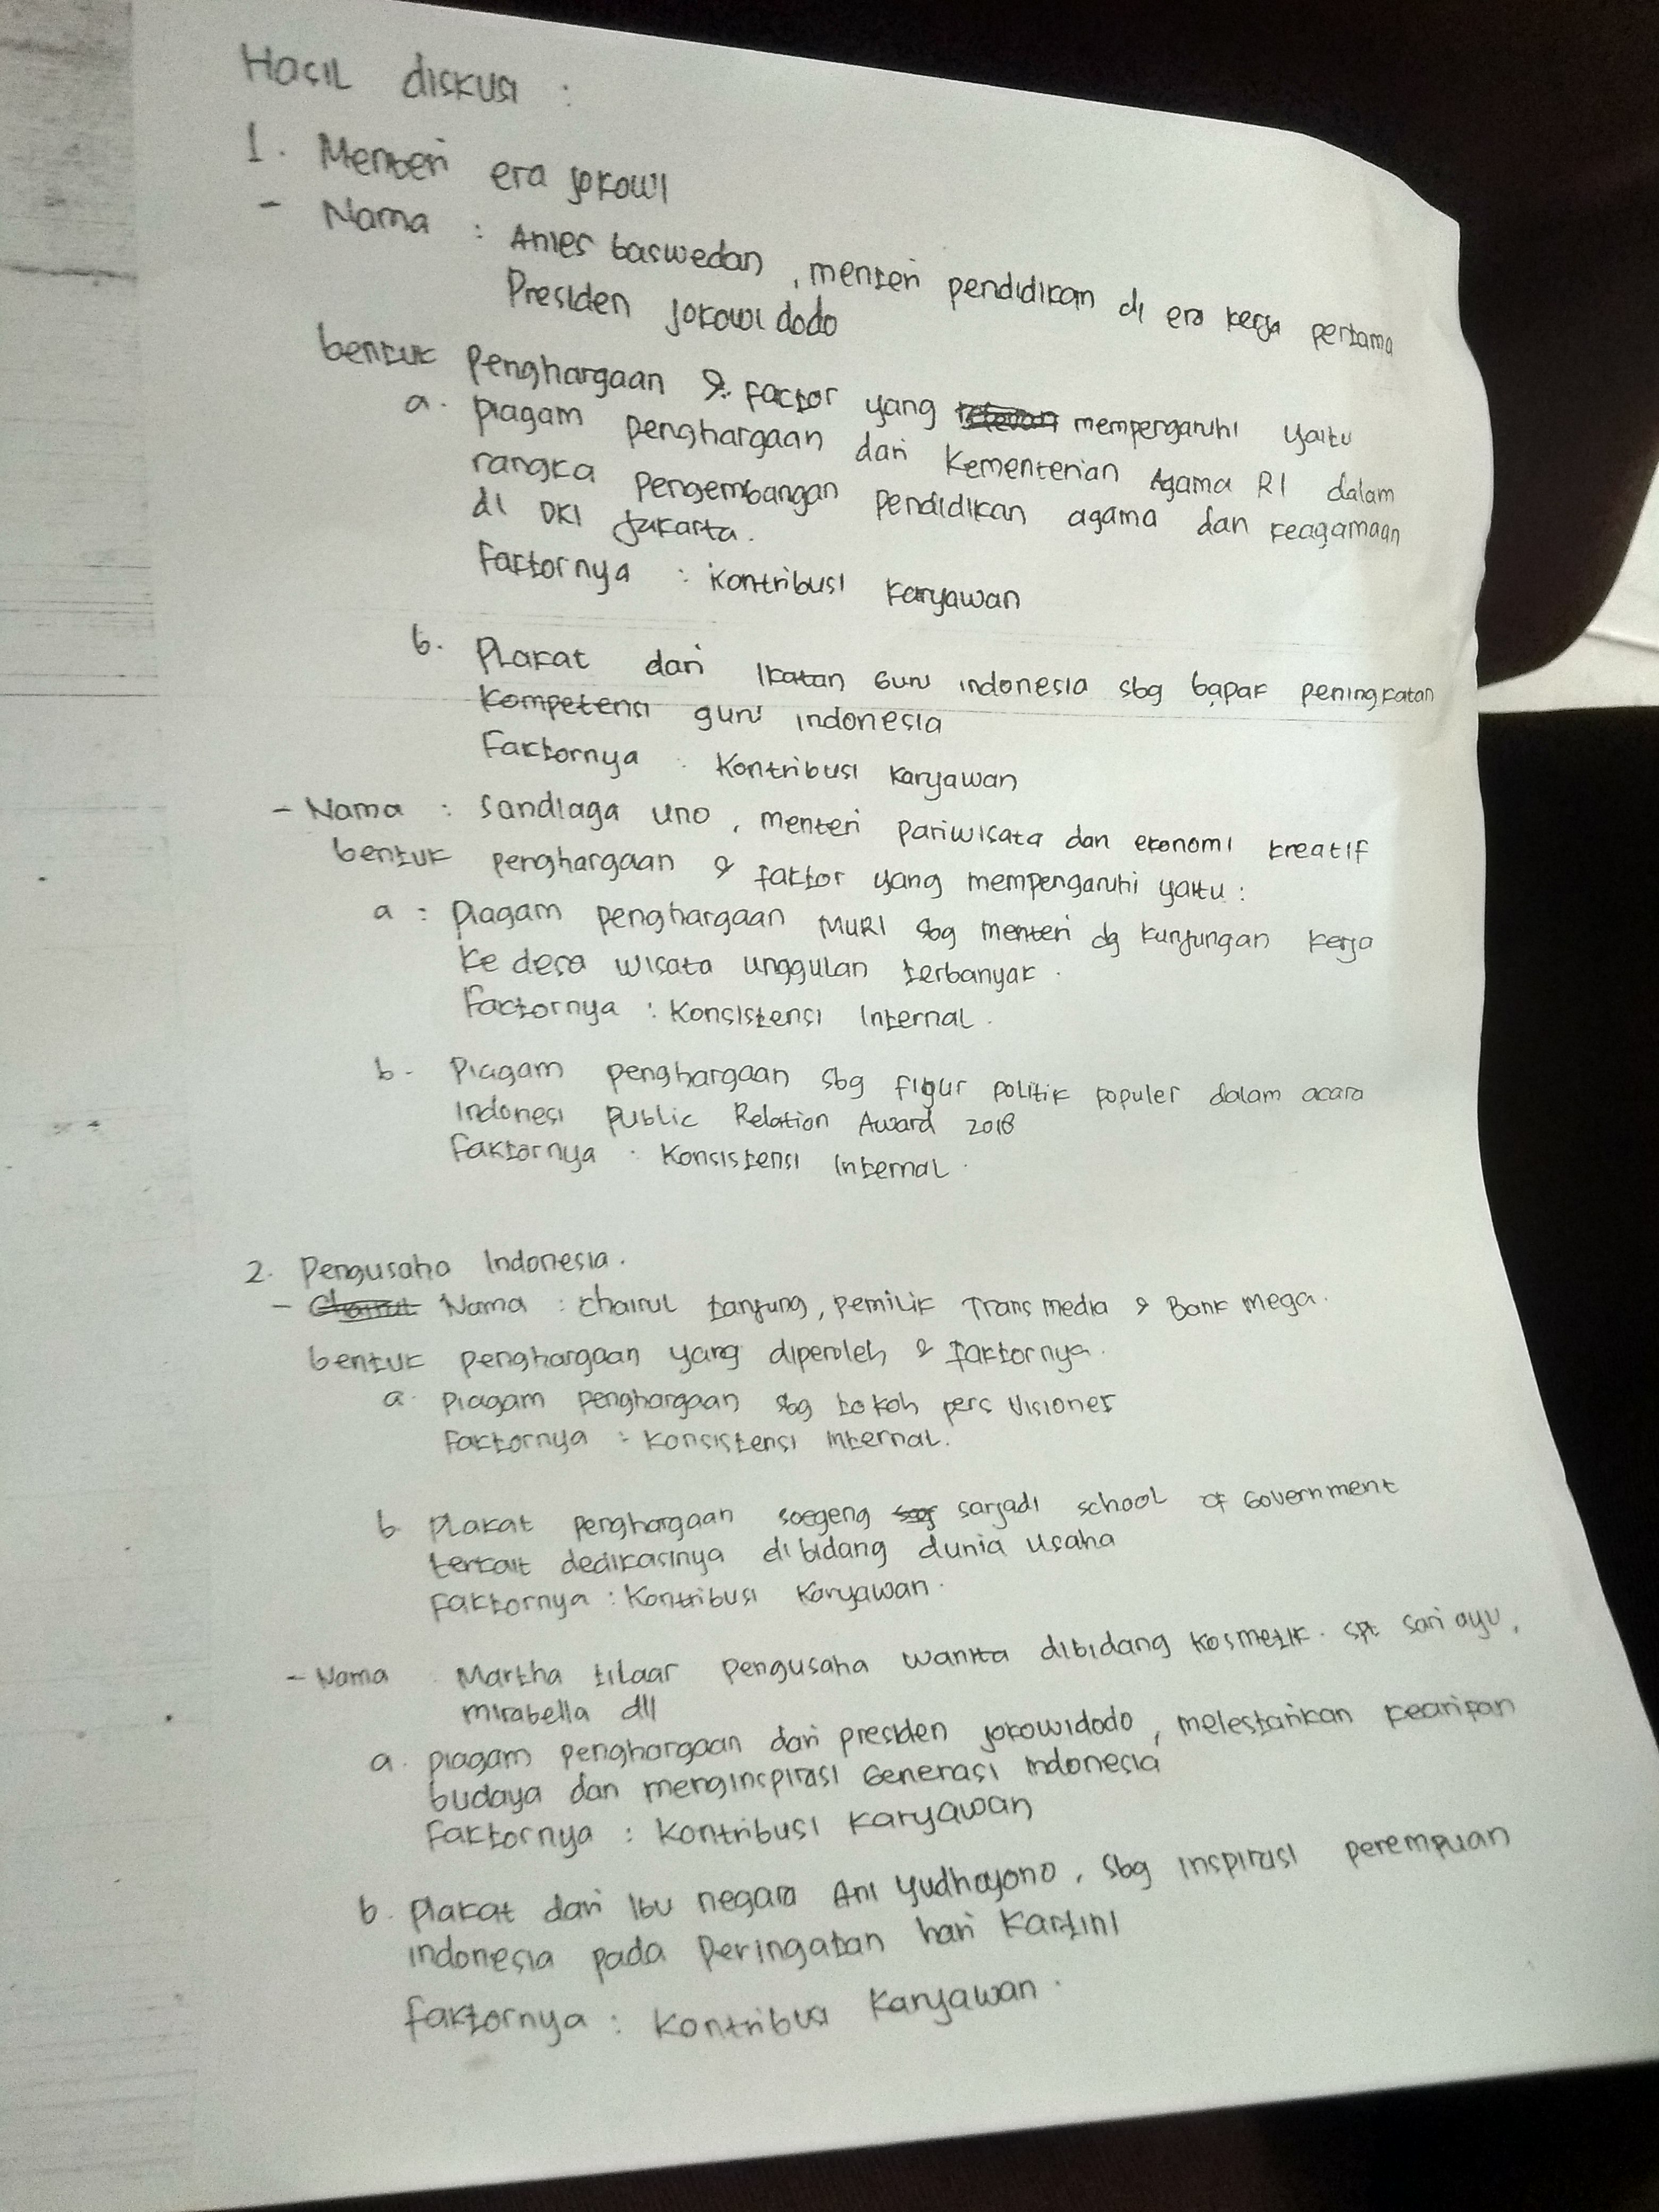 Hasil diskusi :
1. Menteri era jokowi
- Nama : Anies baswedan, menteri pendidikan di era kerja pertama
Presiden jokowi dodo
bentuk Penghargaan & factor yang mempengaruhi yaitu
a. Piagam penghargaan dari Kementerian Agama RI dalam
rangka Pengembangan Pendidikan agama dan keagamaan
di DKI Jakarta.
Faktornya : Kontribusi Karyawan
b. Plakat dari Ikatan Guru indonesia sbg bapak peningkatan
Kompetensi guru indonesia
Faktornya : Kontribusi Karyawan
- Nama : Sandiaga Uno, menteri pariwisata dan ekonomi kreatif
bentuk penghargaan & faktor yang mempengaruhi yaitu :
a : Piagam penghargaan MURI sbg menteri dg kunjungan kerja
ke desa wisata unggulan terbanyak.
Factornya : Konsistensi Internal.
b. Piagam penghargaan sbg figur politik populer dalam acara
Indonesi Public Relation Award 2018
Faktornya : Konsistensi Internal.
2. Pengusaha Indonesia.
- Nama : Chairul tanjung, pemilik Trans media & Bank Mega.
bentuk penghargaan yang diperoleh & faktornya.
a. Piagam penghargaan sbg tokoh pers visioner
Faktornya : Konsistensi internal.
b. Plakat penghargaan soegeng sarjadi school of Government
terkait dedikasinya dibidang dunia usaha
Faktornya : Kontribusi Karyawan.
- Nama : Martha tilaar pengusaha wanita dibidang kosmetik. spt sari ayu,
mirabella dll
a. piagam penghargaan dari presiden jokowidodo, melestarikan kearifan
budaya dan menginspirasi Generasi indonesia
Faktornya : Kontribusi Karyawan
b. Plakat dari Ibu negara Ani Yudhoyono, sbg inspirasi perempuan
indonesia pada Peringatan hari Kartini
faktornya : Kontribusi Karyawan.